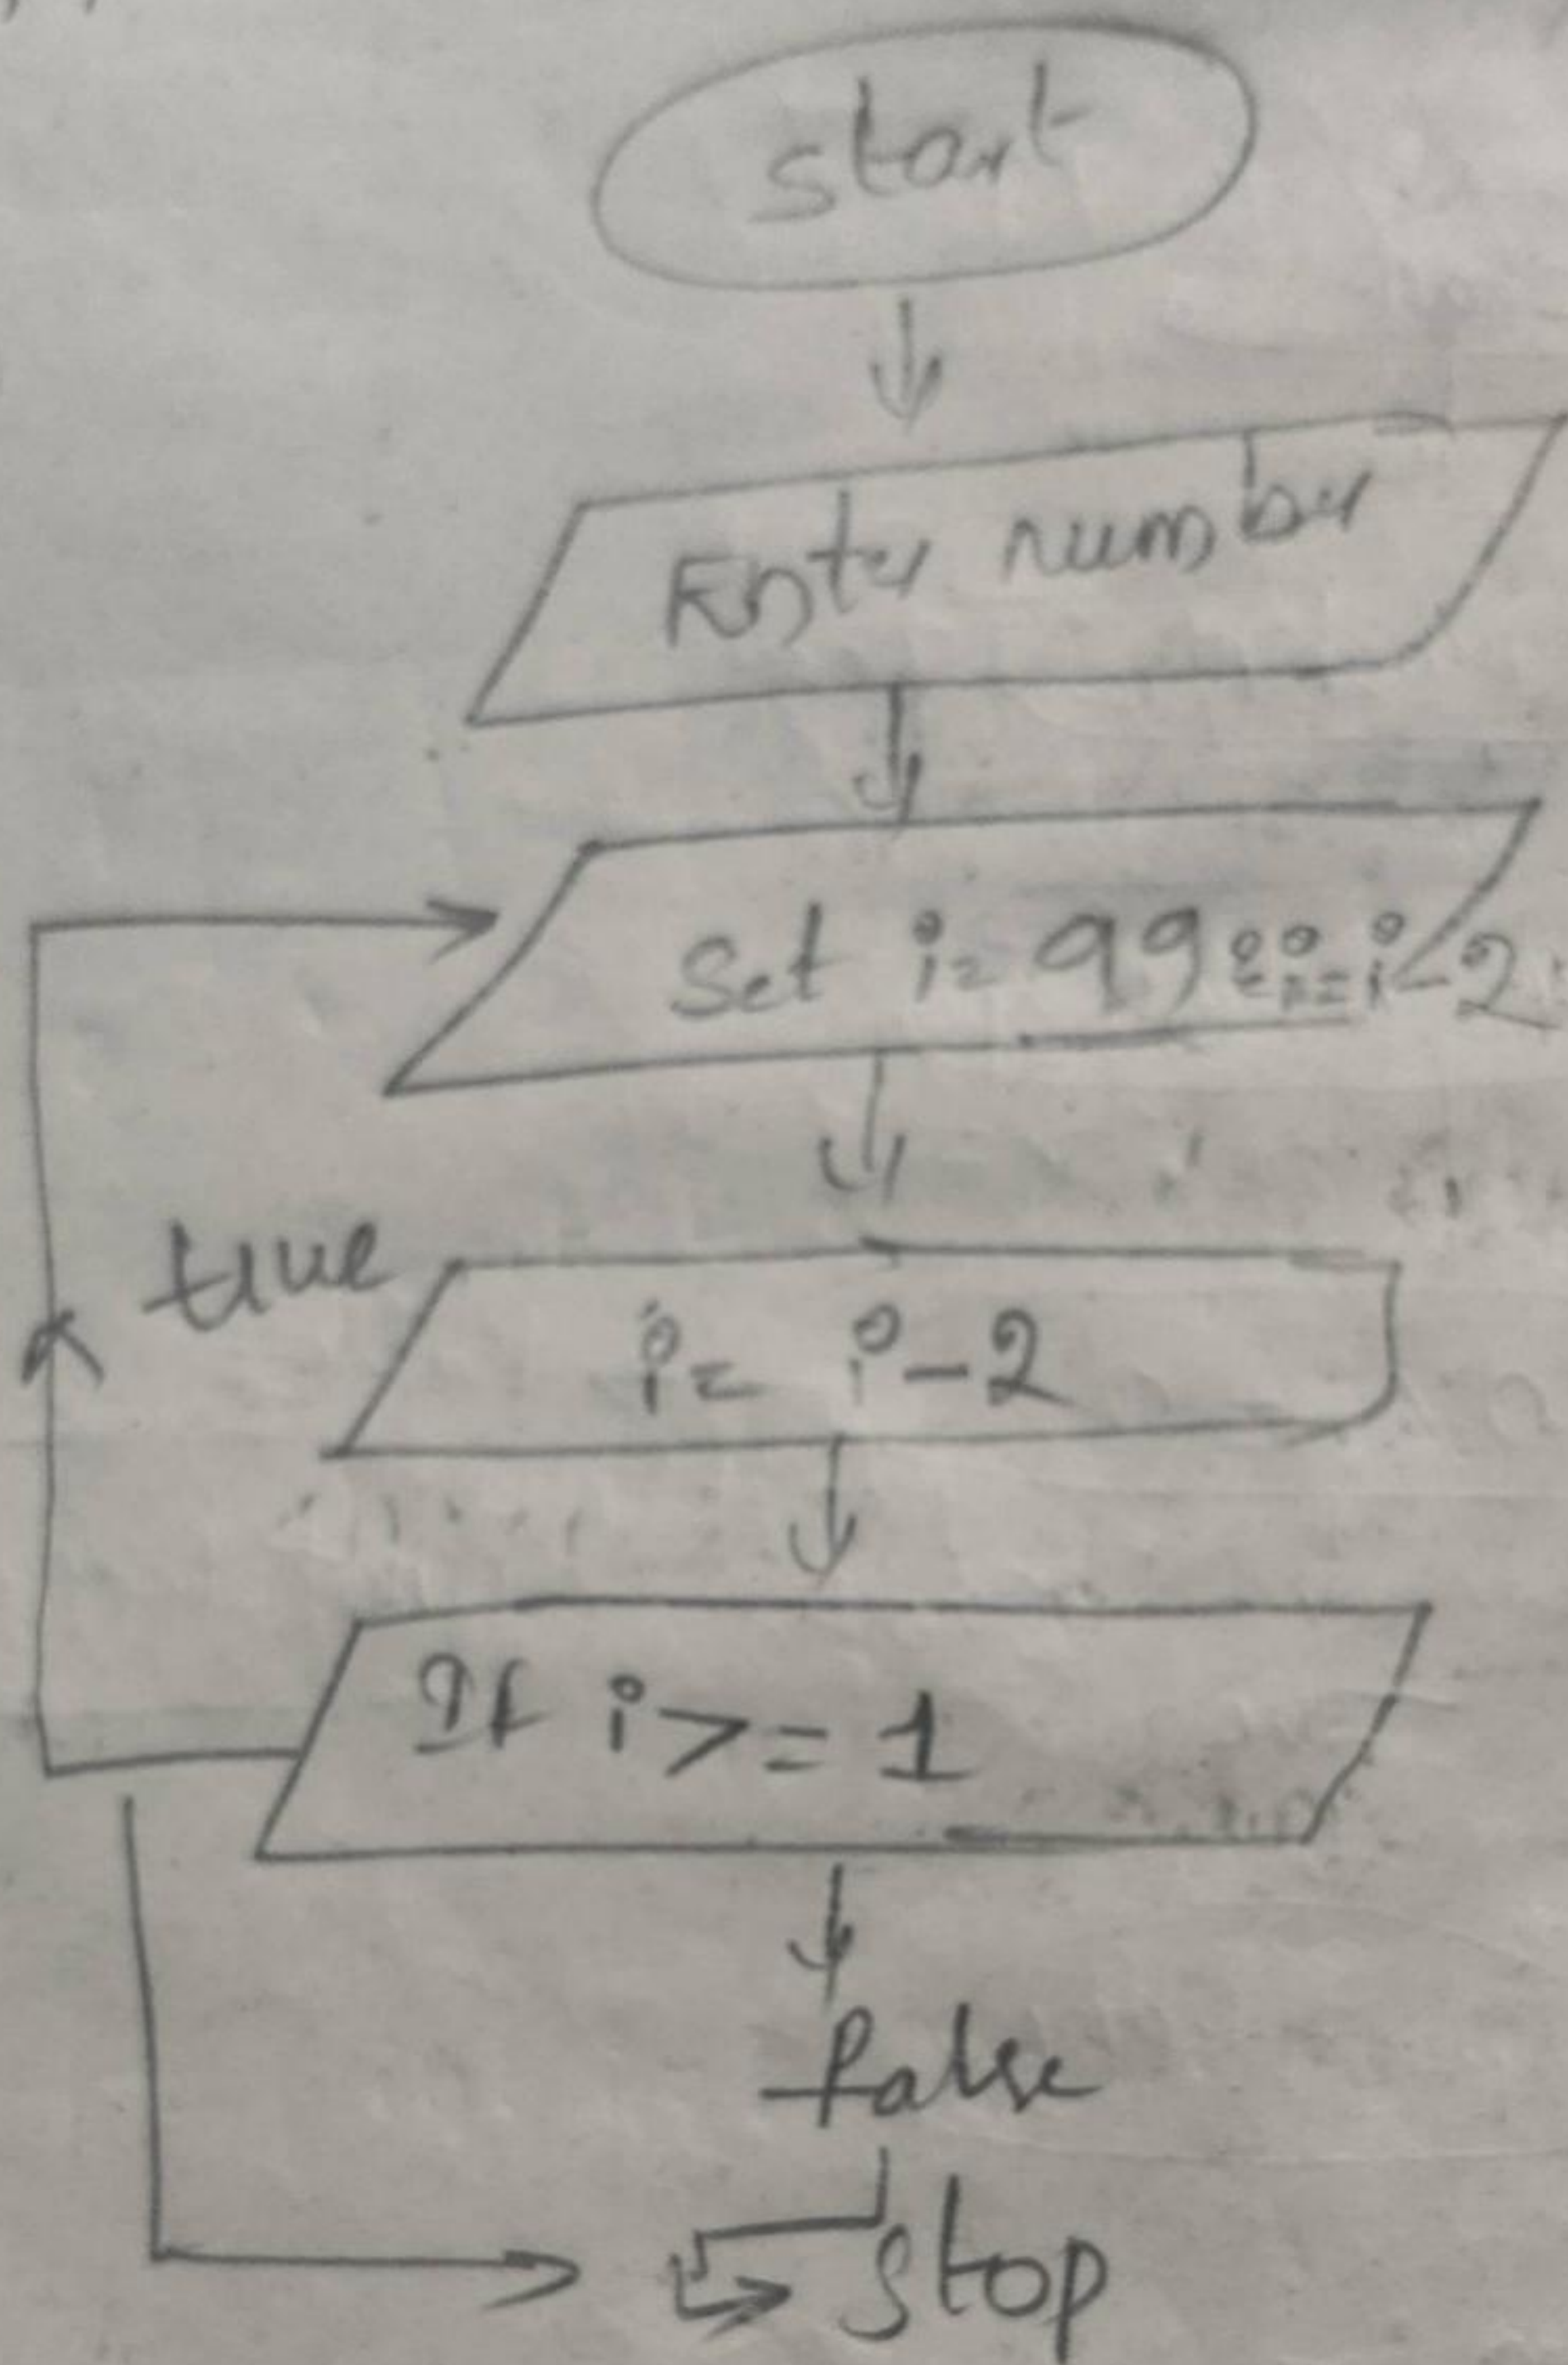 start
Enter number
Set i=99 i=i-2
true
i= i-2
If i>=1
false
stop